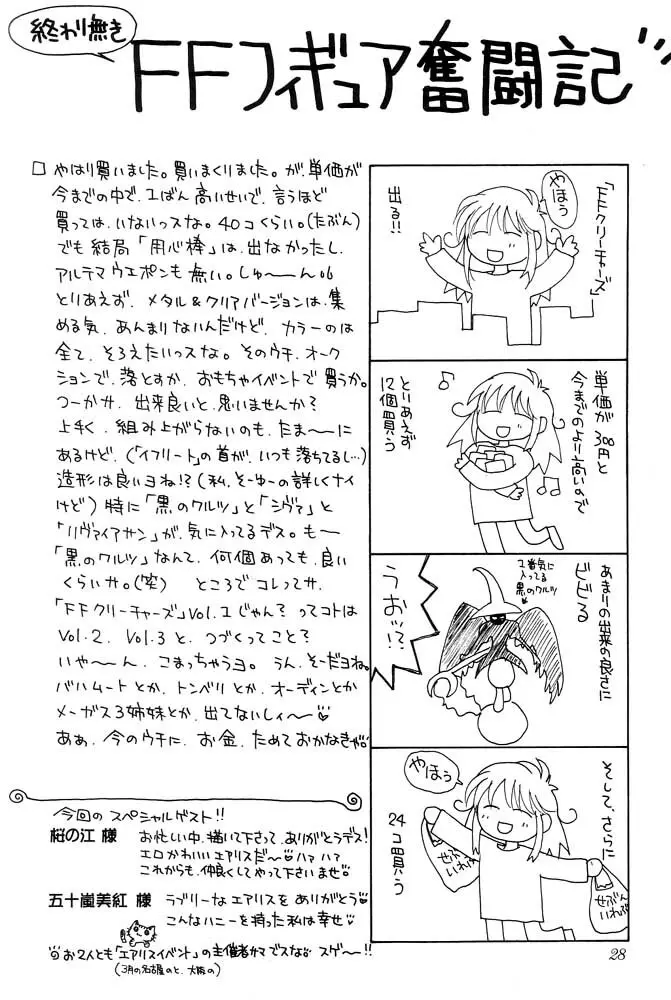 終わり無き
FFフィギュア奮闘記
□ やはり買いました。買いまくりました。が、単価が
今までの中で、1ばん高いせいで、言うほど
買っては、いないっスな。40コくらい。(たぶん)
でも結局「用心棒」は、出なかったし、
アルテマウエポンも無い。しゅ〜〜ん。
とりあえず、メタル&クリアバージョンは、集
める気、あんまりないんだけど、カラーのは
全て、そろえたいっスな。そのウチ、オーク
ションで、落とすか、おもちゃイベントで買うか。
つーかサ、出来良いと、思いませんか?
上手く、組み上がらないのも、たま〜に
あるけど、(「イフリート」の首が、いつも落ちてるし…)
造形は良いヨね!?(私、そーゆーの詳しくナイ
けど)特に「黒のワルツ」と「シヴァ」と
「リヴァイアサン」が、気に入ってるデス。も〜
「黒のワルツ」なんて、何個あっても、良い
くらいサ。(笑) ところでコレってサ、
「FFクリーチャーズ」Vol.1じゃん? ってコトは
Vol.2、Vol.3と、つづくってこと?
いや〜〜ん、こまっちゃうヨ。うん、そーだヨね。
バハムートとか、トンベリとか、オーディンとか
メーガス3姉妹とか、出てないしィ〜
ああ、今のウチに、お金、ためておかなきゃ
「FFクリーチャーズ」
出る!!
やほぅ
単価が300円と
今までのより高いので
とりあえず
12個買う
あまりの出来の良さに
ビビる
1番気に
入ってる
黒のワルツ
うおッ!?
そして、さらに
24コ買う
やほぅ
せぶん
いれぶ
せぶん
いれぶ
今回の スペシャルゲスト!!
桜の江 様
お忙しい中、描いて下さって、ありがとうデス!
エロかわいいエアリスだ〜 ハァ ハァ
これからも、仲良くしてやって下さいませ
五十嵐美紅 様
ラブリーなエアリスを ありがとう
こんなハニーを持った私は幸せ
お2人とも「エアリスイベント」の主催者サマでスな スゲ〜!!
(3月の名古屋のと、大阪の)
28